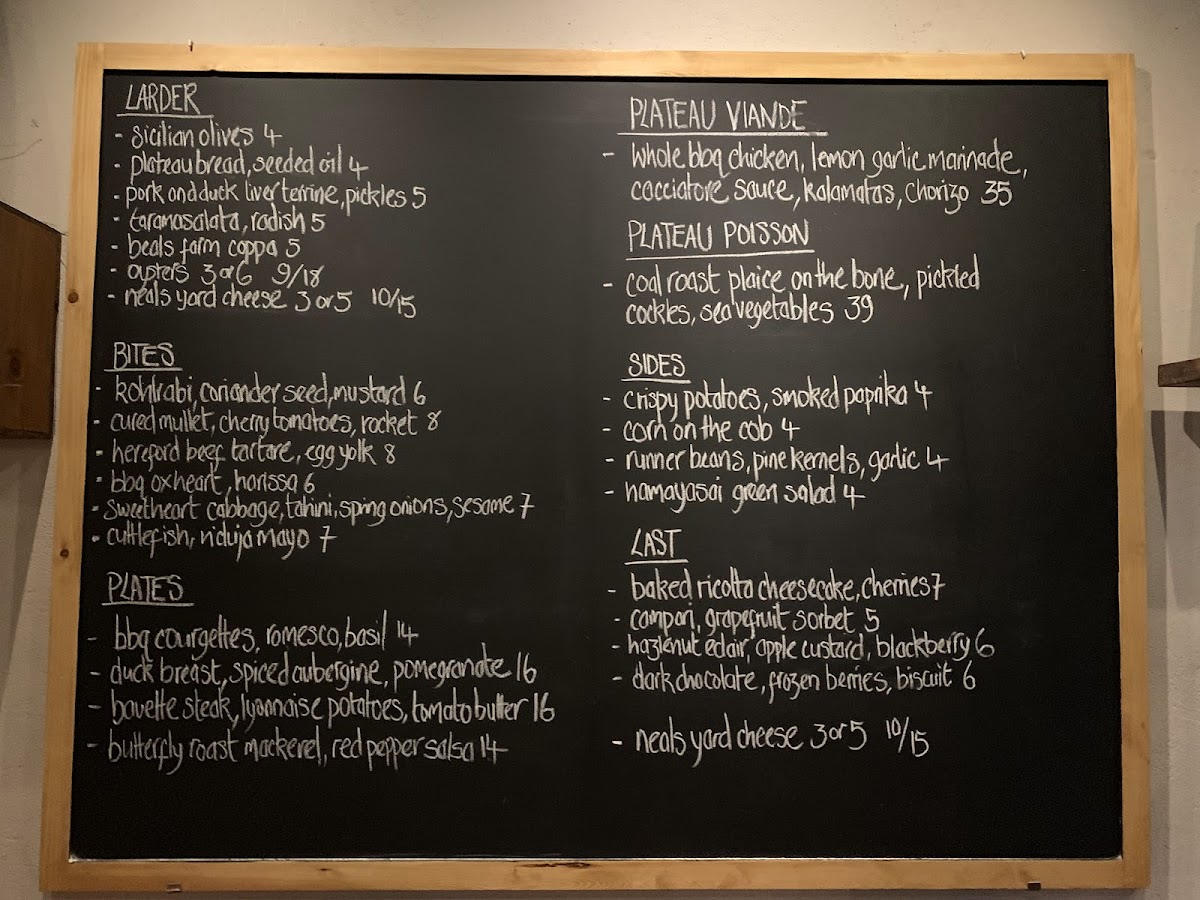 LARDER
- sicilian olives 4
- plateau bread, seeded oil 4
- pork and duck liver terrine, pickles 5
- taramasalata, radish 5
- beals farm coppa 5
- oysters 3 or 6 9/18
- neals yard cheese 3 or 5 10/15
BITES
- kohlrabi, coriander seed, mustard 6
- cured mullet, cherry tomatoes, rocket 8
- hereford beef tartare, egg yolk 8
- bbq oxheart, harissa 6
- sweetheart cabbage, tahini, spring onions, sesame 7
- cuttlefish, n'duja mayo 7
PLATES
- bbq courgettes, romesco, basil 14
- duck breast, spiced aubergine, pomegranate 16
- bavette steak, lyonnaise potatoes, tomato butter 16
- butterfly roast mackerel, red pepper salsa 14
PLATEAU VIANDE
- whole bbq chicken, lemon garlic marinade,
cacciatore sauce, kalamatas, chorizo 35
PLATEAU POISSON
- coal roast plaice on the bone, pickled
cockles, sea vegetables 39
SIDES
- crispy potatoes, smoked paprika 4
- corn on the cob 4
- runner beans, pine kernels, garlic 4
- namayasai green salad 4
LAST
- baked ricotta cheesecake, cherries 7
- campari, grapefruit sorbet 5
- hazlenut eclair, apple custard, blackberry 6
- dark chocolate, frozen berries, biscuit 6
- neals yard cheese 3 or 5 10/15